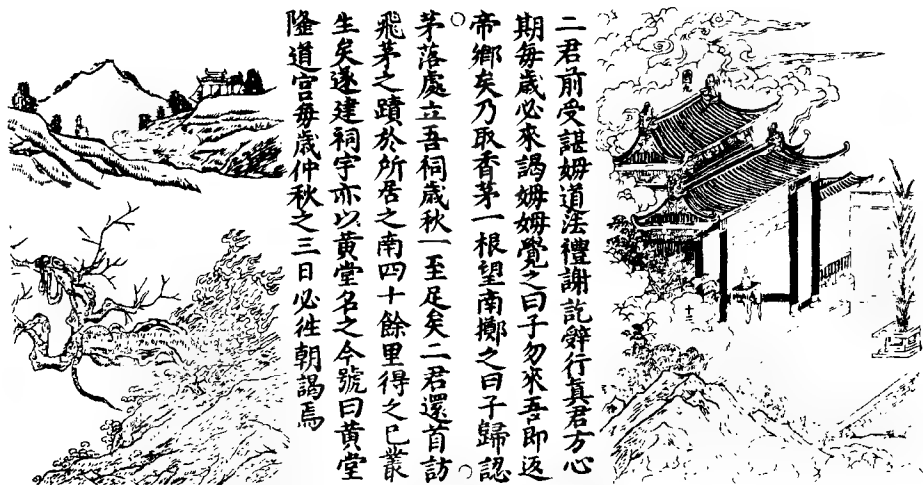 二君前受諶姆道法禮謝訖辤行真君方心
期每歲必來謁姆姆覺之曰子勿來吾即返
帝鄉矣乃取香茅一根望南擲之曰子歸認
茅落處立吾祠歲秋一至足矣二君還首訪
飛茅之蹟於所居之南四十餘里得之已叢
生矣遂建祠宇亦以黃堂名之今號曰黃堂
隆道宮每歲仲秋之三日必徃朝謁焉